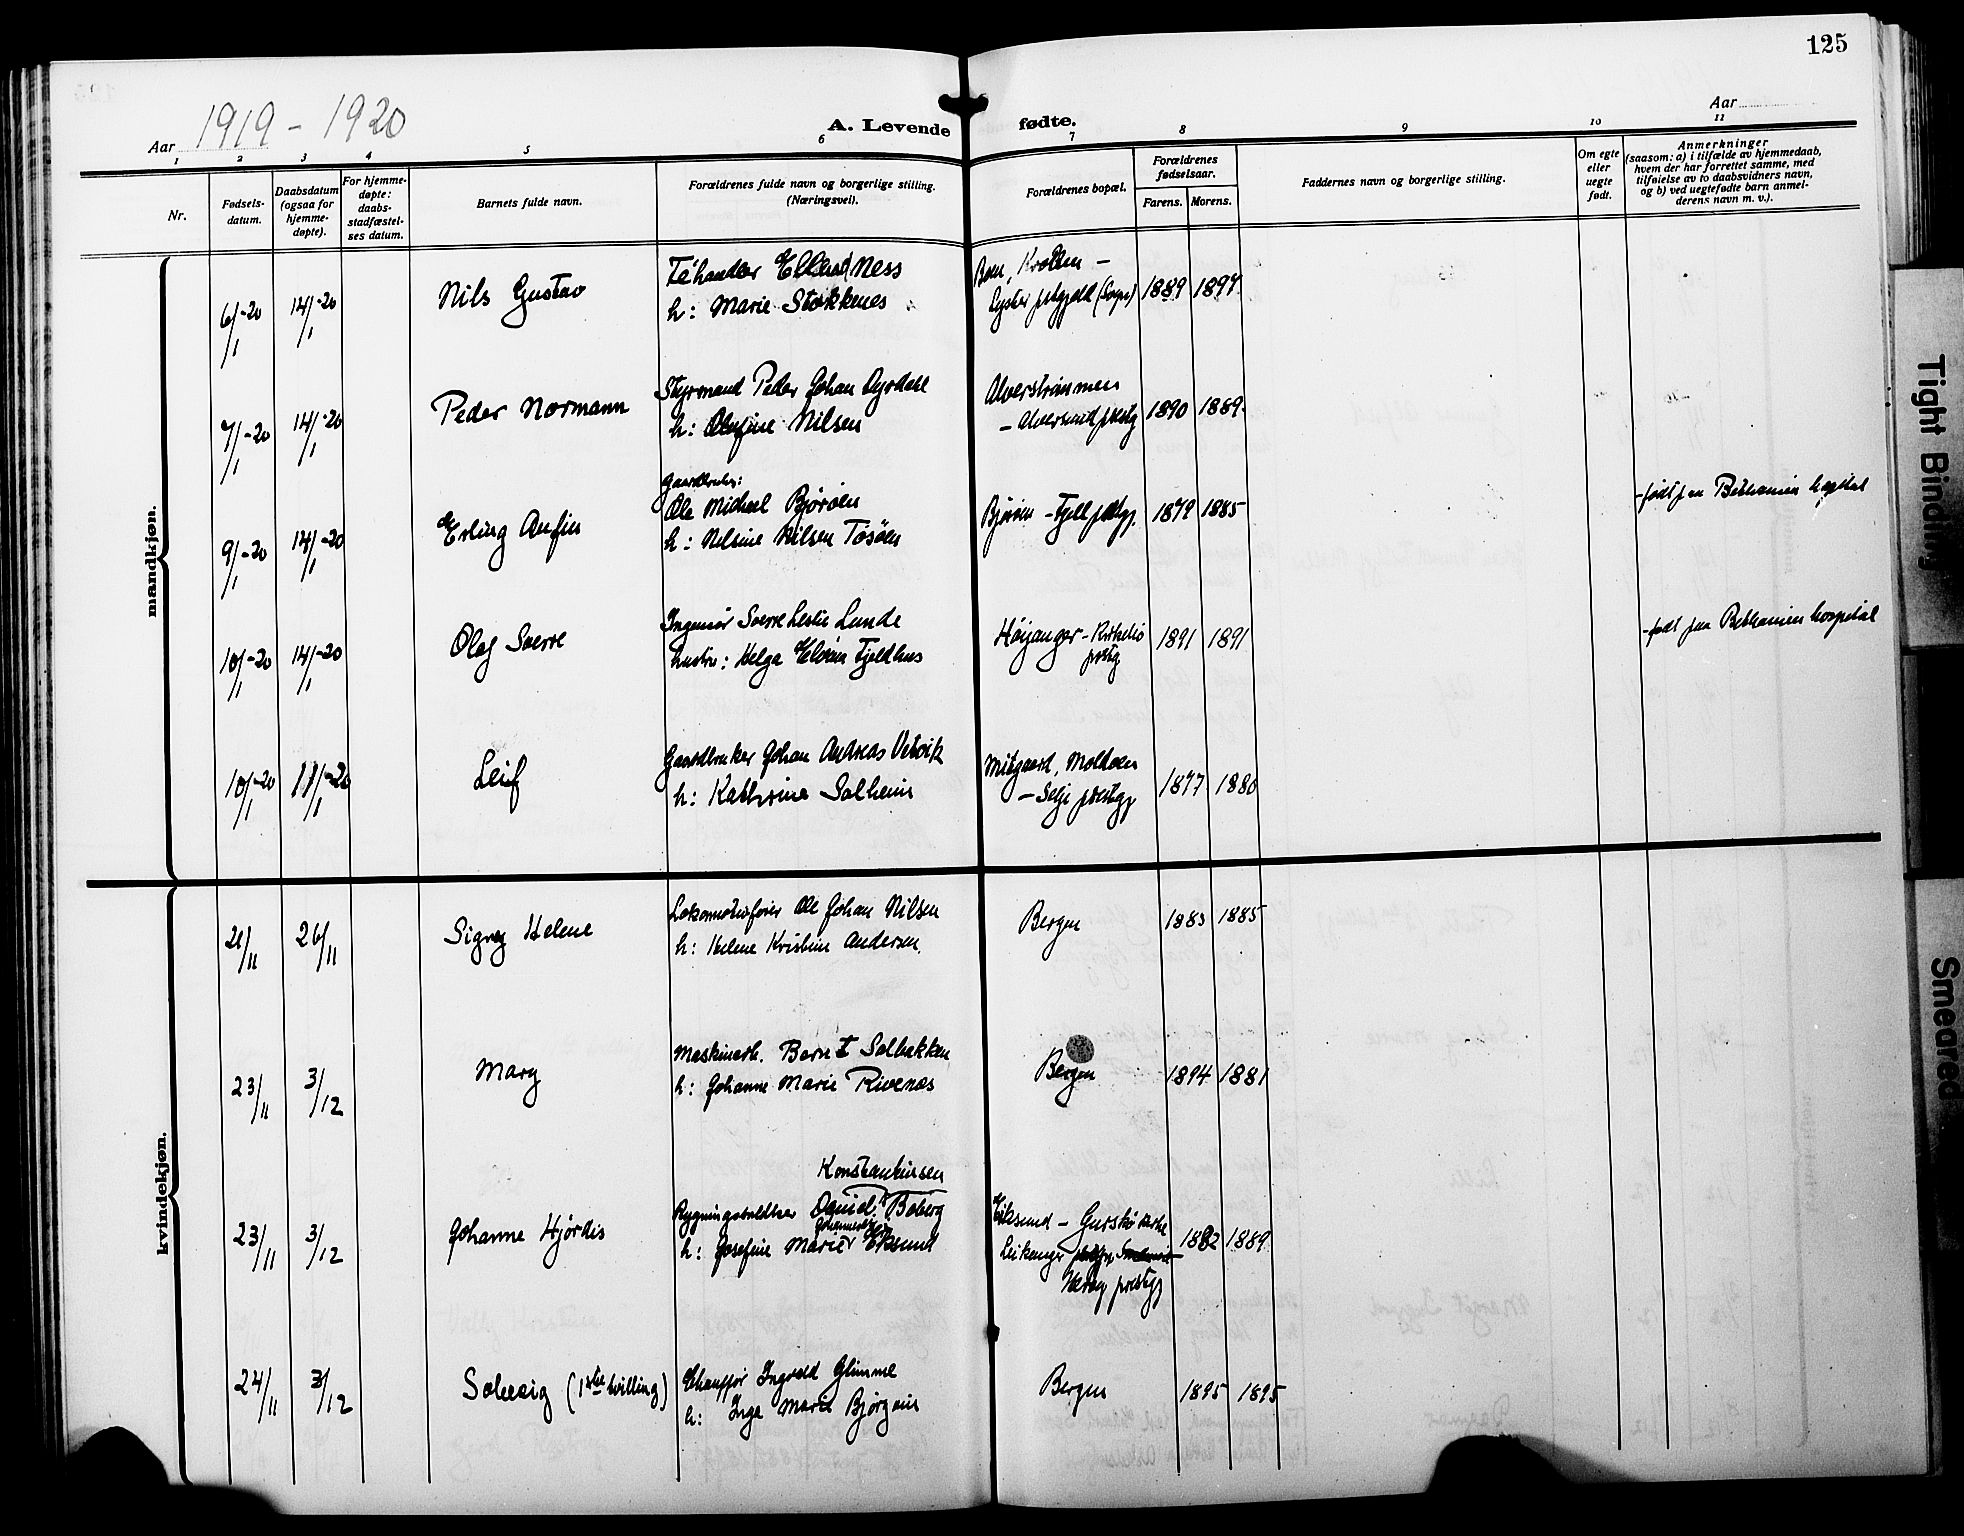 125
1919 - 1920
Aar
A. Levende fødte.
Aar
1 2 3 4 5 6 7 8 9 10 11
Nr.
Fødsels-
datum.
Daabsdatum
(ogsaa for
hjemme-
døpte).
For hjemme-
døpte:
daabs-
stadfæstel-
ses datum.
Barnets fulde navn.
Forældrenes fulde navn og borgerlige stilling.
(Næringsvei).
Forældrenes bopæl.
Forældrenes
fødselsaar.
Farens. Morens.
Faddernes navn og borgerlige stilling.
Om egte
eller
uegte
født.
Anmerkninger
(saasom: a) i tilfælde av hjemmedaab,
hvem der har forrettet samme, med
tilføielse av to daabsvidners navn,
og b) ved uegtefødte barn anmel-
derens navn m. v.).
mandkjøn.
6/1-20 14/1-20 Nils Gustav
Ness
h: Marie Stokkenes
Lyster (Sogn) 1889 1897
7/1-20 14/1-20 Peder Normann
Styrmand Peder Johan
h: Nilsen
Alverstrømmen
- Alversund prestg 1890 1889
9/1-20 14/1-20 Erling Anfin
Gaardbruker:
Ole Michael Bjørøen
h: Nilsine Nilsen Tøsøen
Bjørøen - Fjell prestgj. 1879 1885
- født paa Bethanien hospital
10/1-20 14/1-20 Olaf Sverre
Ingeniør Sverre Leslie Lunde
hustru: Helga Fjeldhus
Høyanger - Kirkebø
prestg 1891 1891
- født paa Bethanien hospital
10/1-20 /1-20 Leif
Gaardbruker Johan Andreas Vetvik
h: Kathrine Solheim
Mitgaard, Moldøen
- Selje prestgj 1877 1880
kvindekjøn.
21/11 26/11 Signy Helene
Lokomotivfører Ole Johan Nilsen
h: Helene Kristine Andersen
Bergen 1883 1885
23/11 3/12 Mary
Maskinarb. Bernt Solbakken
h: Johanne Marie Rivenes
Bergen 1894 1881
23/11 3/12 Johanne Hjørdis
Konstantinsen
Daniel Boberg
h: Josefine Marie Eksund
Eiksund - Gurskø
Leikanger
Herøy prestgj 1882 1889
24/11 3/12 Solveig (1ste tvilling)
Chauffør Ingvald Glimme
h: Inga Marie
Bergen 1895 1895
Tight Binding
Smeared